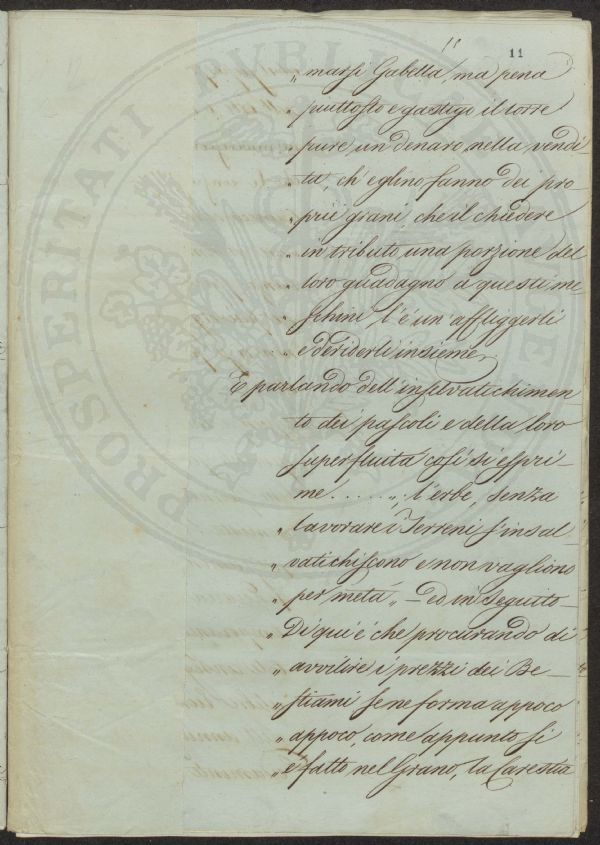 11 11
„ marsi Gabella, ma pena
„ piuttosto e gastigo il torre
„ pure un denaro nella vendi-
„ ta, ch'eglino fanno dei pro-
„ prii grani, che il chiedere
„ in tributo una porzione del
„ loro guadagno a questi me-
„ schini l'è un'affliggerli
„ e deriderli insieme,
E parlando dell'inselvatichimen-
to dei pascoli e della loro
superfluità così si espri-
me ...... „ l'erbe, senza
„ lavorare i Terreni s'insal-
„ vatichiscono e non vagliono
„ per metà „ — ed in seguito —
„ Di qui è che procurando di
„ avvilire i prezzi dei Be-
„ stiami se ne forma appoco
„ appoco, come appunto si
„ è fatto nel Grano, la Carestia
PROSPERITATI PVBLICAE AVGENDAE